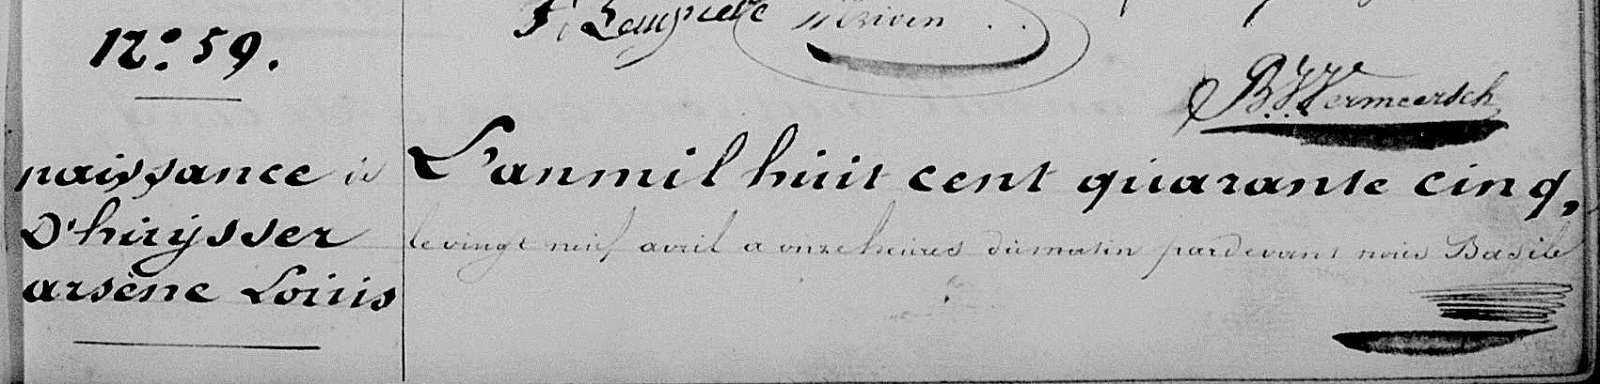 N.º 59.
B.J. Vermeersch
naissance
D'huÿsser
arsène Louis
L'an mil huit cent quarante cinq,
le vingt neuf avril a onze heures du matin pardevant nous Basile